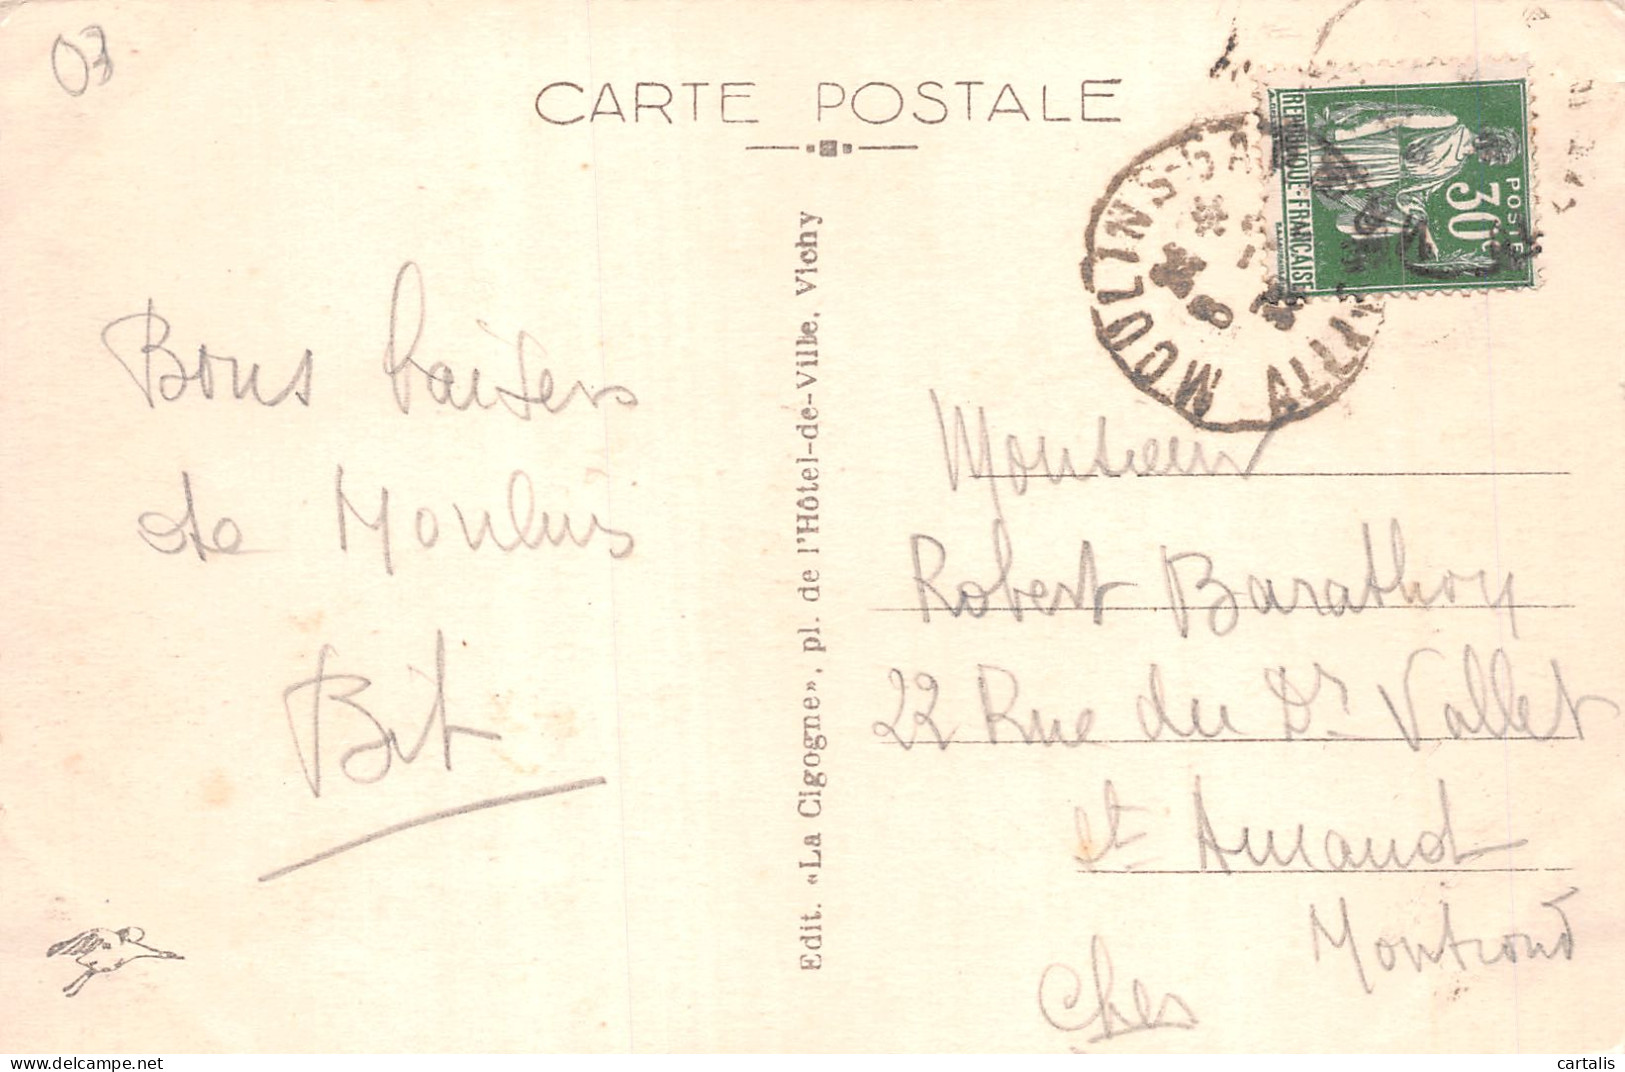 03
CARTE POSTALE
REPUBLIQUE-FRANÇAISE
POSTES
30c
MOULINS-GARE
ALLIER
Bons baisers
de Moulins
Edit. «La Cigogne», pl. de l'Hôtel-de-Ville, Vichy
Monsieur
Robert Barathon
22 Rue du Dr Vallet
St Amand
Montrond
Cher
cartalis
www.delcampe.net